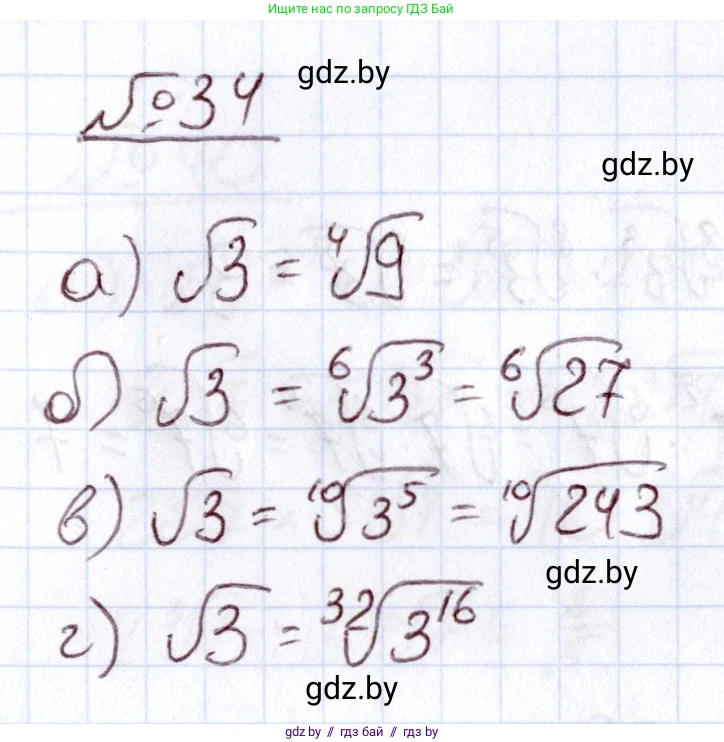 Ищите нас по запросу ГДЗ Бай
№34
gdz.by
gdz.by
а) √3 = ⁴√9
б) √3 = ⁶√3³ = ⁶√27
в) √3 = ¹⁰√3⁵ = ¹⁰√243
gdz.by
г) √3 = ³²√3¹⁶
gdz.by
gdz.by // гдз бай // гдз by